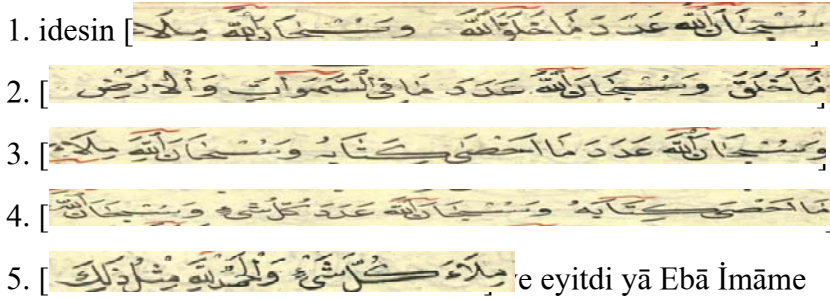 1. idesin [سُبْحَانَ اللّٰهِ عَدَدَ مَا خَلَقَ اللّٰهُ وَسُبْحَانَ اللّٰهِ مِلَاءَ]
2. [مَا خَلَقَ وَسُبْحَانَ اللّٰهِ عَدَدَ مَا فِي السَّمَوَاتِ وَالْاَرْضِ]
3. [وَسُبْحَانَ اللّٰهِ عَدَدَ مَا اَحْصَى كِتَابُهُ وَسُبْحَانَ اللّٰهِ مِلَاءَ
4. [مَا اَحْصَى كِتَابُهُ وَسُبْحَانَ اللّٰهِ عَدَدَ كُلِّ شَىْءٍ وَسُبْحَانَ اللّٰهِ
5. [مِلَاءَ كُلِّ شَىْءٍ وَالْحَمْدُ لِلّٰهِ مِثْلَ ذٰلِكَ] ve eyitdi yā Ebā İmāme